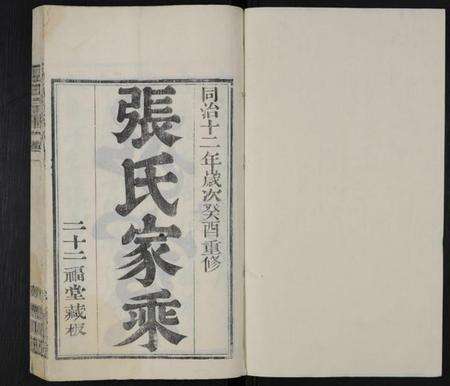 同治十二年歲次癸酉重修
張氏家乘
二十二福堂藏板